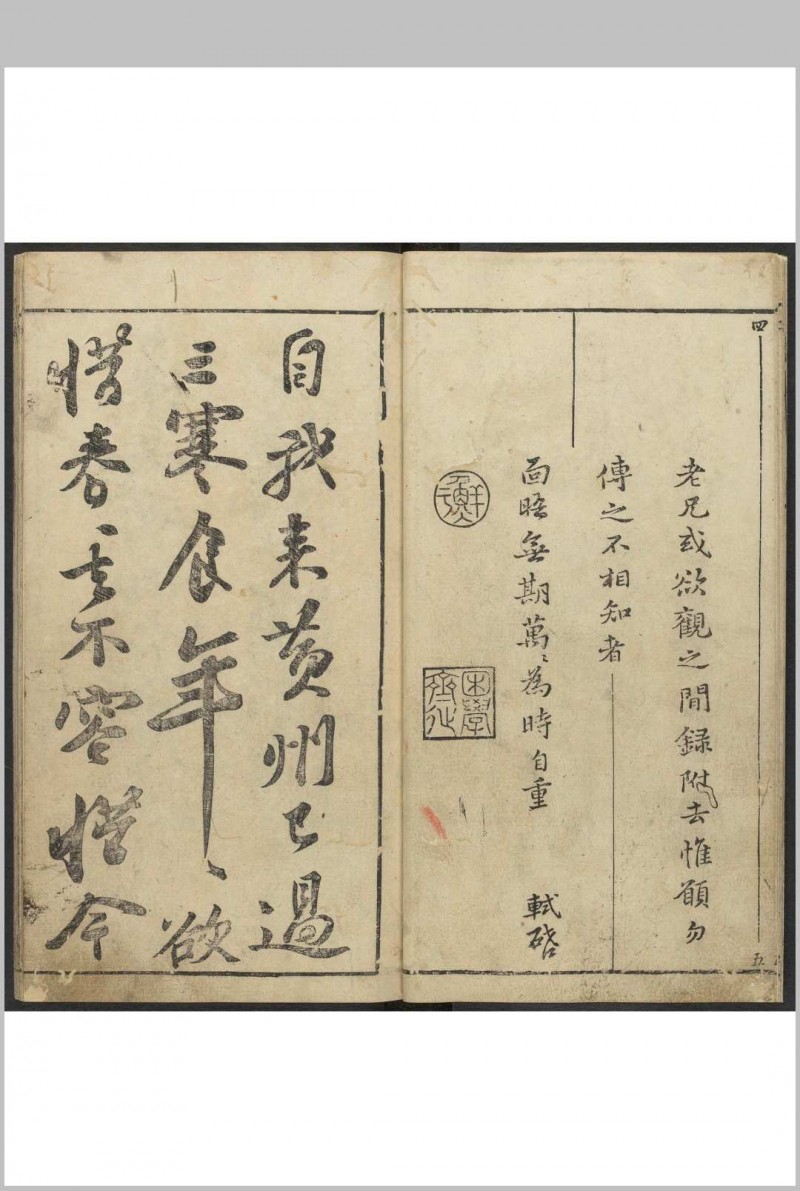 四
老兄或欲觀之間録附去惟願勿
傳之不相知者
面晤無期萬〻為時自重 軾啓
鮮于
困學齋
五
自我来黄州已過
三寒食年〻欲
惜春〻去不容惜今